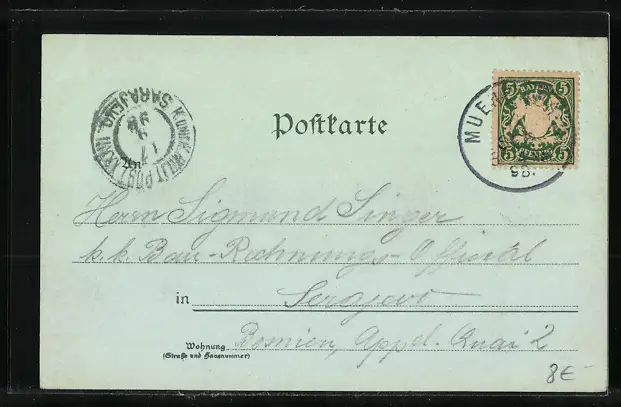 BAYERN
5 5
5 PFENNIG 5
MUE
98.
SARAJEVO
K.UND K. MILIT.POST
98
Postkarte
Herrn Sigmund Singer
k. k. Bau-Rechnungs-Official
in Serajevo
Wohnung Bosnien, Appel-Quai 2
(Straße und Hausnummer)
8€